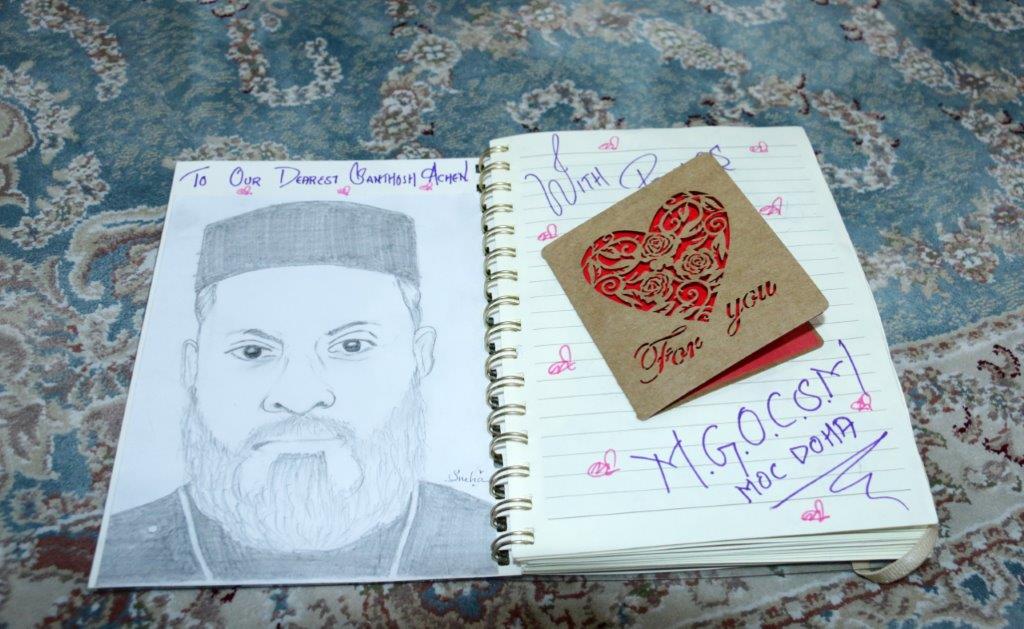 To Our Dearest Santhosh Achen
Sneha
With
For you
M.G.O.C.S.M
MOC DOHA